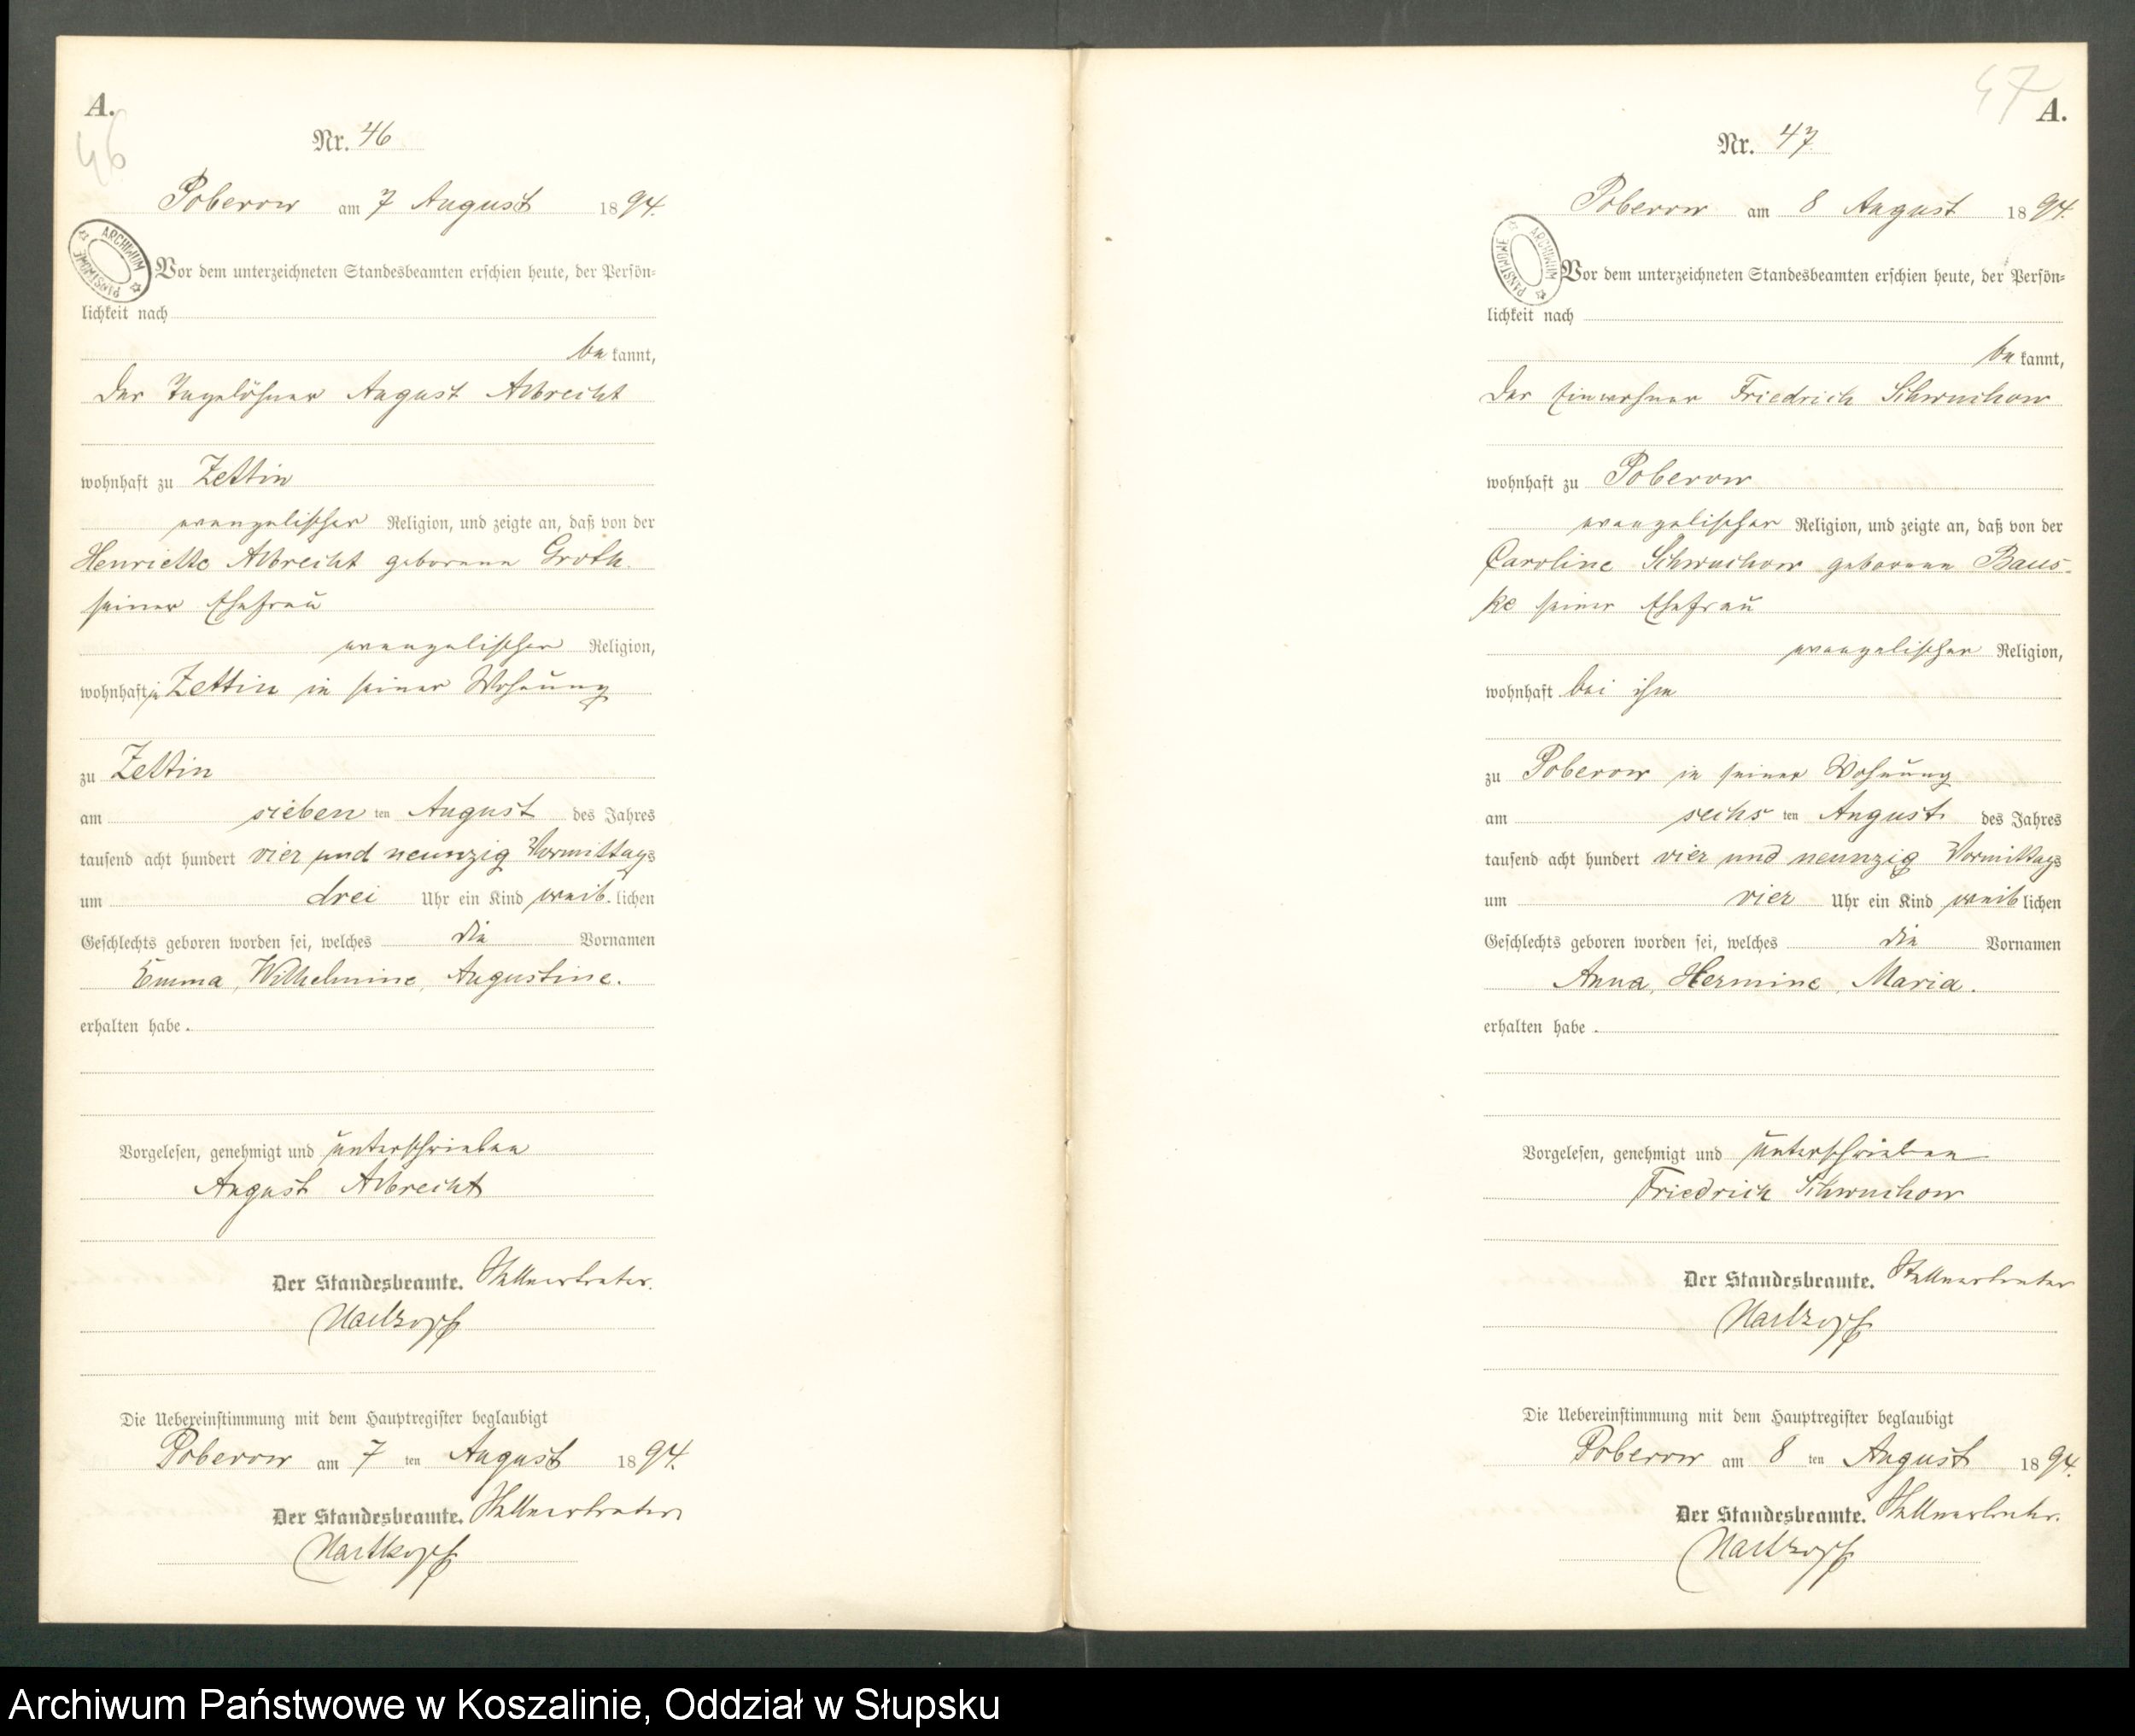 A.
46
Nr. 46
Poberow am 7 August 1894.
ARCHIWUM PAŃSTWOWE
Vor dem unterzeichneten Standesbeamten erschien heute, der Persön-
lichkeit nach
be kannt,
der Tagelöhner August Albrecht
wohnhaft zu Zettin
evangelischer Religion, und zeigte an, daß von der
Henriette Albrecht geborene Groth
seiner Ehefrau
evangelischer Religion,
wohnhaft zu Zettin in seiner Wohnung
zu Zettin
am sieben ten August des Jahres
tausend acht hundert vier und neunzig Vormittags
um drei Uhr ein Kind weib lichen
Geschlechts geboren worden sei, welches die Vornamen
Emma, Wilhelmine, Augustine.
erhalten habe.
Vorgelesen, genehmigt und unterschrieben
August Albrecht
Der Standesbeamte. Stellvertreter.
Hartkopf
Die Uebereinstimmung mit dem Hauptregister beglaubigt
Poberow am 7 ten August 1894.
Der Standesbeamte. Stellvertreter
Hartkopf
47
A.
Nr. 47
Poberow am 8 August 1894.
ARCHIWUM PAŃSTWOWE
Vor dem unterzeichneten Standesbeamten erschien heute, der Persön-
lichkeit nach
be kannt,
der Einwohner Friedrich Schwuchow
wohnhaft zu Poberow
evangelischer Religion, und zeigte an, daß von der
Caroline Schwuchow geborene Baus-
ke seiner Ehefrau
evangelischer Religion,
wohnhaft bei ihm
zu Poberow in seiner Wohnung
am sechs ten August des Jahres
tausend acht hundert vier und neunzig Vormittags
um vier Uhr ein Kind weib lichen
Geschlechts geboren worden sei, welches die Vornamen
Anna, Hermine, Maria.
erhalten habe.
Vorgelesen, genehmigt und unterschrieben
Friedrich Schwuchow
Der Standesbeamte. Stellvertreter
Hartkopf
Die Uebereinstimmung mit dem Hauptregister beglaubigt
Poberow am 8 ten August 1894.
Der Standesbeamte. Stellvertreter.
Hartkopf
Archiwum Państwowe w Koszalinie, Oddział w Słupsku